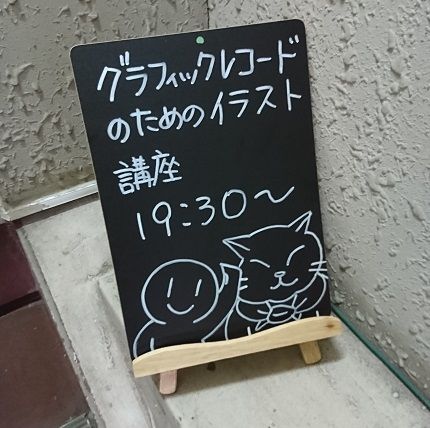 グラフィックレコード
のためのイラスト
講座
19:30〜